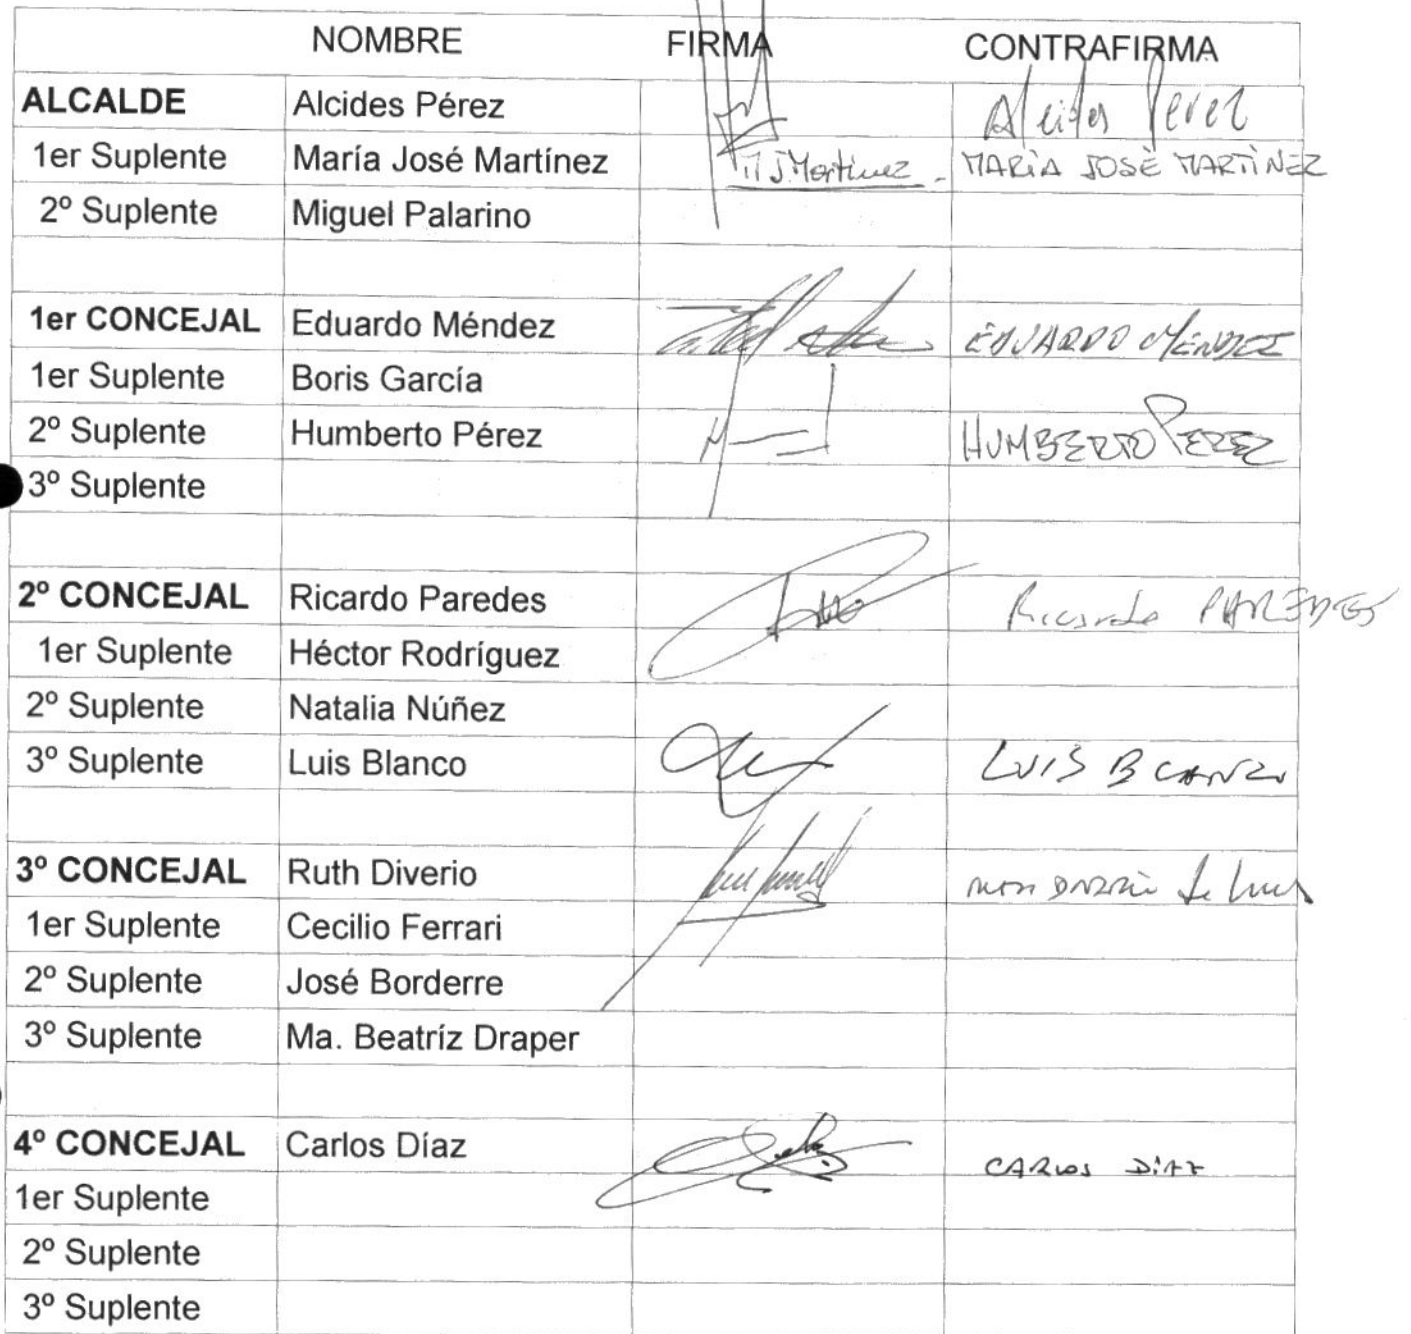 NOMBRE FIRMA CONTRAFIRMA
ALCALDE Alcides Pérez Alcides Perez
1er Suplente María José Martínez M J. Martinez MARÍA JOSÉ MARTÍNEZ
2º Suplente Miguel Palarino
1er CONCEJAL Eduardo Méndez EDUARDO MÉNDEZ
1er Suplente Boris García
2º Suplente Humberto Pérez HUMBERTO PEREZ
3º Suplente
2º CONCEJAL Ricardo Paredes Ricardo PAREDES
1er Suplente Héctor Rodríguez
2º Suplente Natalia Núñez
3º Suplente Luis Blanco LUIS BLANCO
3º CONCEJAL Ruth Diverio
1er Suplente Cecilio Ferrari
2º Suplente José Borderre
3º Suplente Ma. Beatríz Draper
4º CONCEJAL Carlos Díaz CARLOS DíAZ
1er Suplente
2º Suplente
3º Suplente